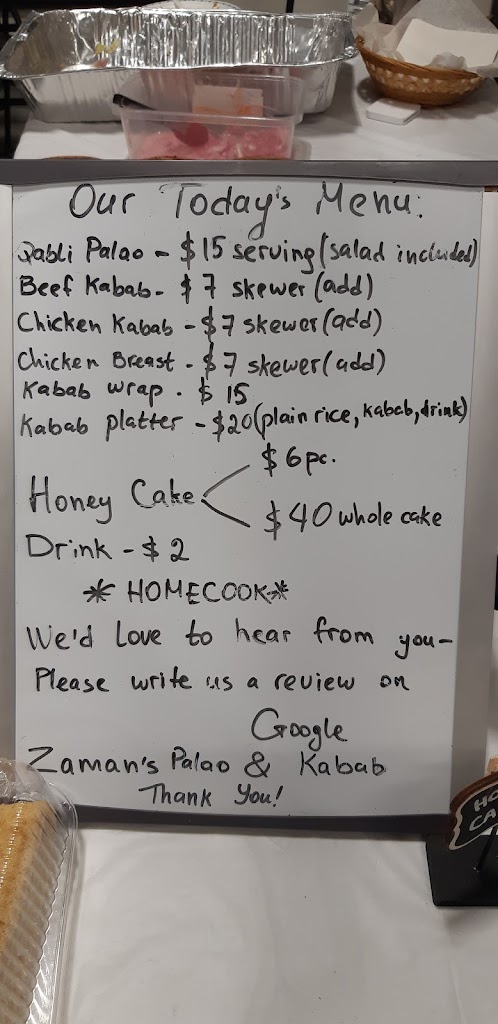 Our Today's Menu:
Qabli Palao - $15 serving (salad included)
Beef Kabab - $7 skewer (add)
Chicken Kabab - $7 skewer (add)
Chicken Breast - $7 skewer (add)
Kabab wrap . $ 15
Kabab platter - $20 (plain rice, kabab, drink)
$6 pc.
Honey Cake
$40 whole cake
Drink - $2
* HOMECOOK *
We'd Love to hear from you -
Please write us a review on
Google
Zaman's Palao & Kabab
Thank You!
HO
CA